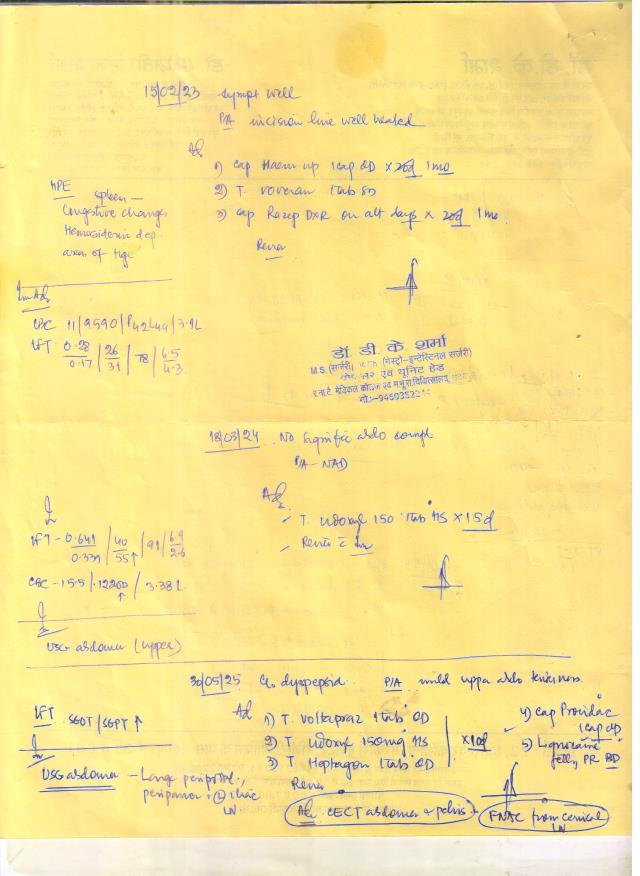 15/02/23 sympt well
P/A incision line well healed
Ad.
1) Cap Haem up 1cap OD x 20d 1mo
HPE spleen —
2) T. Voveran 1tab SD
Congestive changes
3) Cap Razep DXR on alt days x 20d 1mo.
Hemosiderin dep.
areas of
Review
Inv Ad.
CBC 11/9590/P42L44/3.9L
LFT 0.28/0.17 / 26/31 / 78 / 6.5/4.3
डॉ. डी. के. शर्मा
M.S. (सर्जरी), (गेस्ट्रो-इन्टेस्टिनल सर्जरी)
एवं यूनिट हेड
मेडिकल कॉलेज एवं
मो.:-9460352
18/03/24 . No signific abdo compl
P/A - NAD
Adv.
T Udoxyl 150 1tab HS x 15d
Review c̄ Inv
LFT - 0.641/0.331 / 40/55↑ / 91 / 6.9/2.6
CBC - 15.5/12260↑/3.38L
USG abdomen (upper)
30/05/25 C/o dyspepsia. P/A mild upper abdo tenderness.
LFT SGOT/SGPT ↑
Ad 1) T. Voltapraz 1tab OD
2) T. Udoxyl 150mg HS
3) T. Heptagon 1tab OD
x10d
4) Cap Providac 1cap OD
5) Lignocaine jelly PR BD
USG abdomen - Large periportal,
peripancr. (L) iliac
LN
Review
Ad. CECT abdomen + pelvis
FNAC from cervical
LN